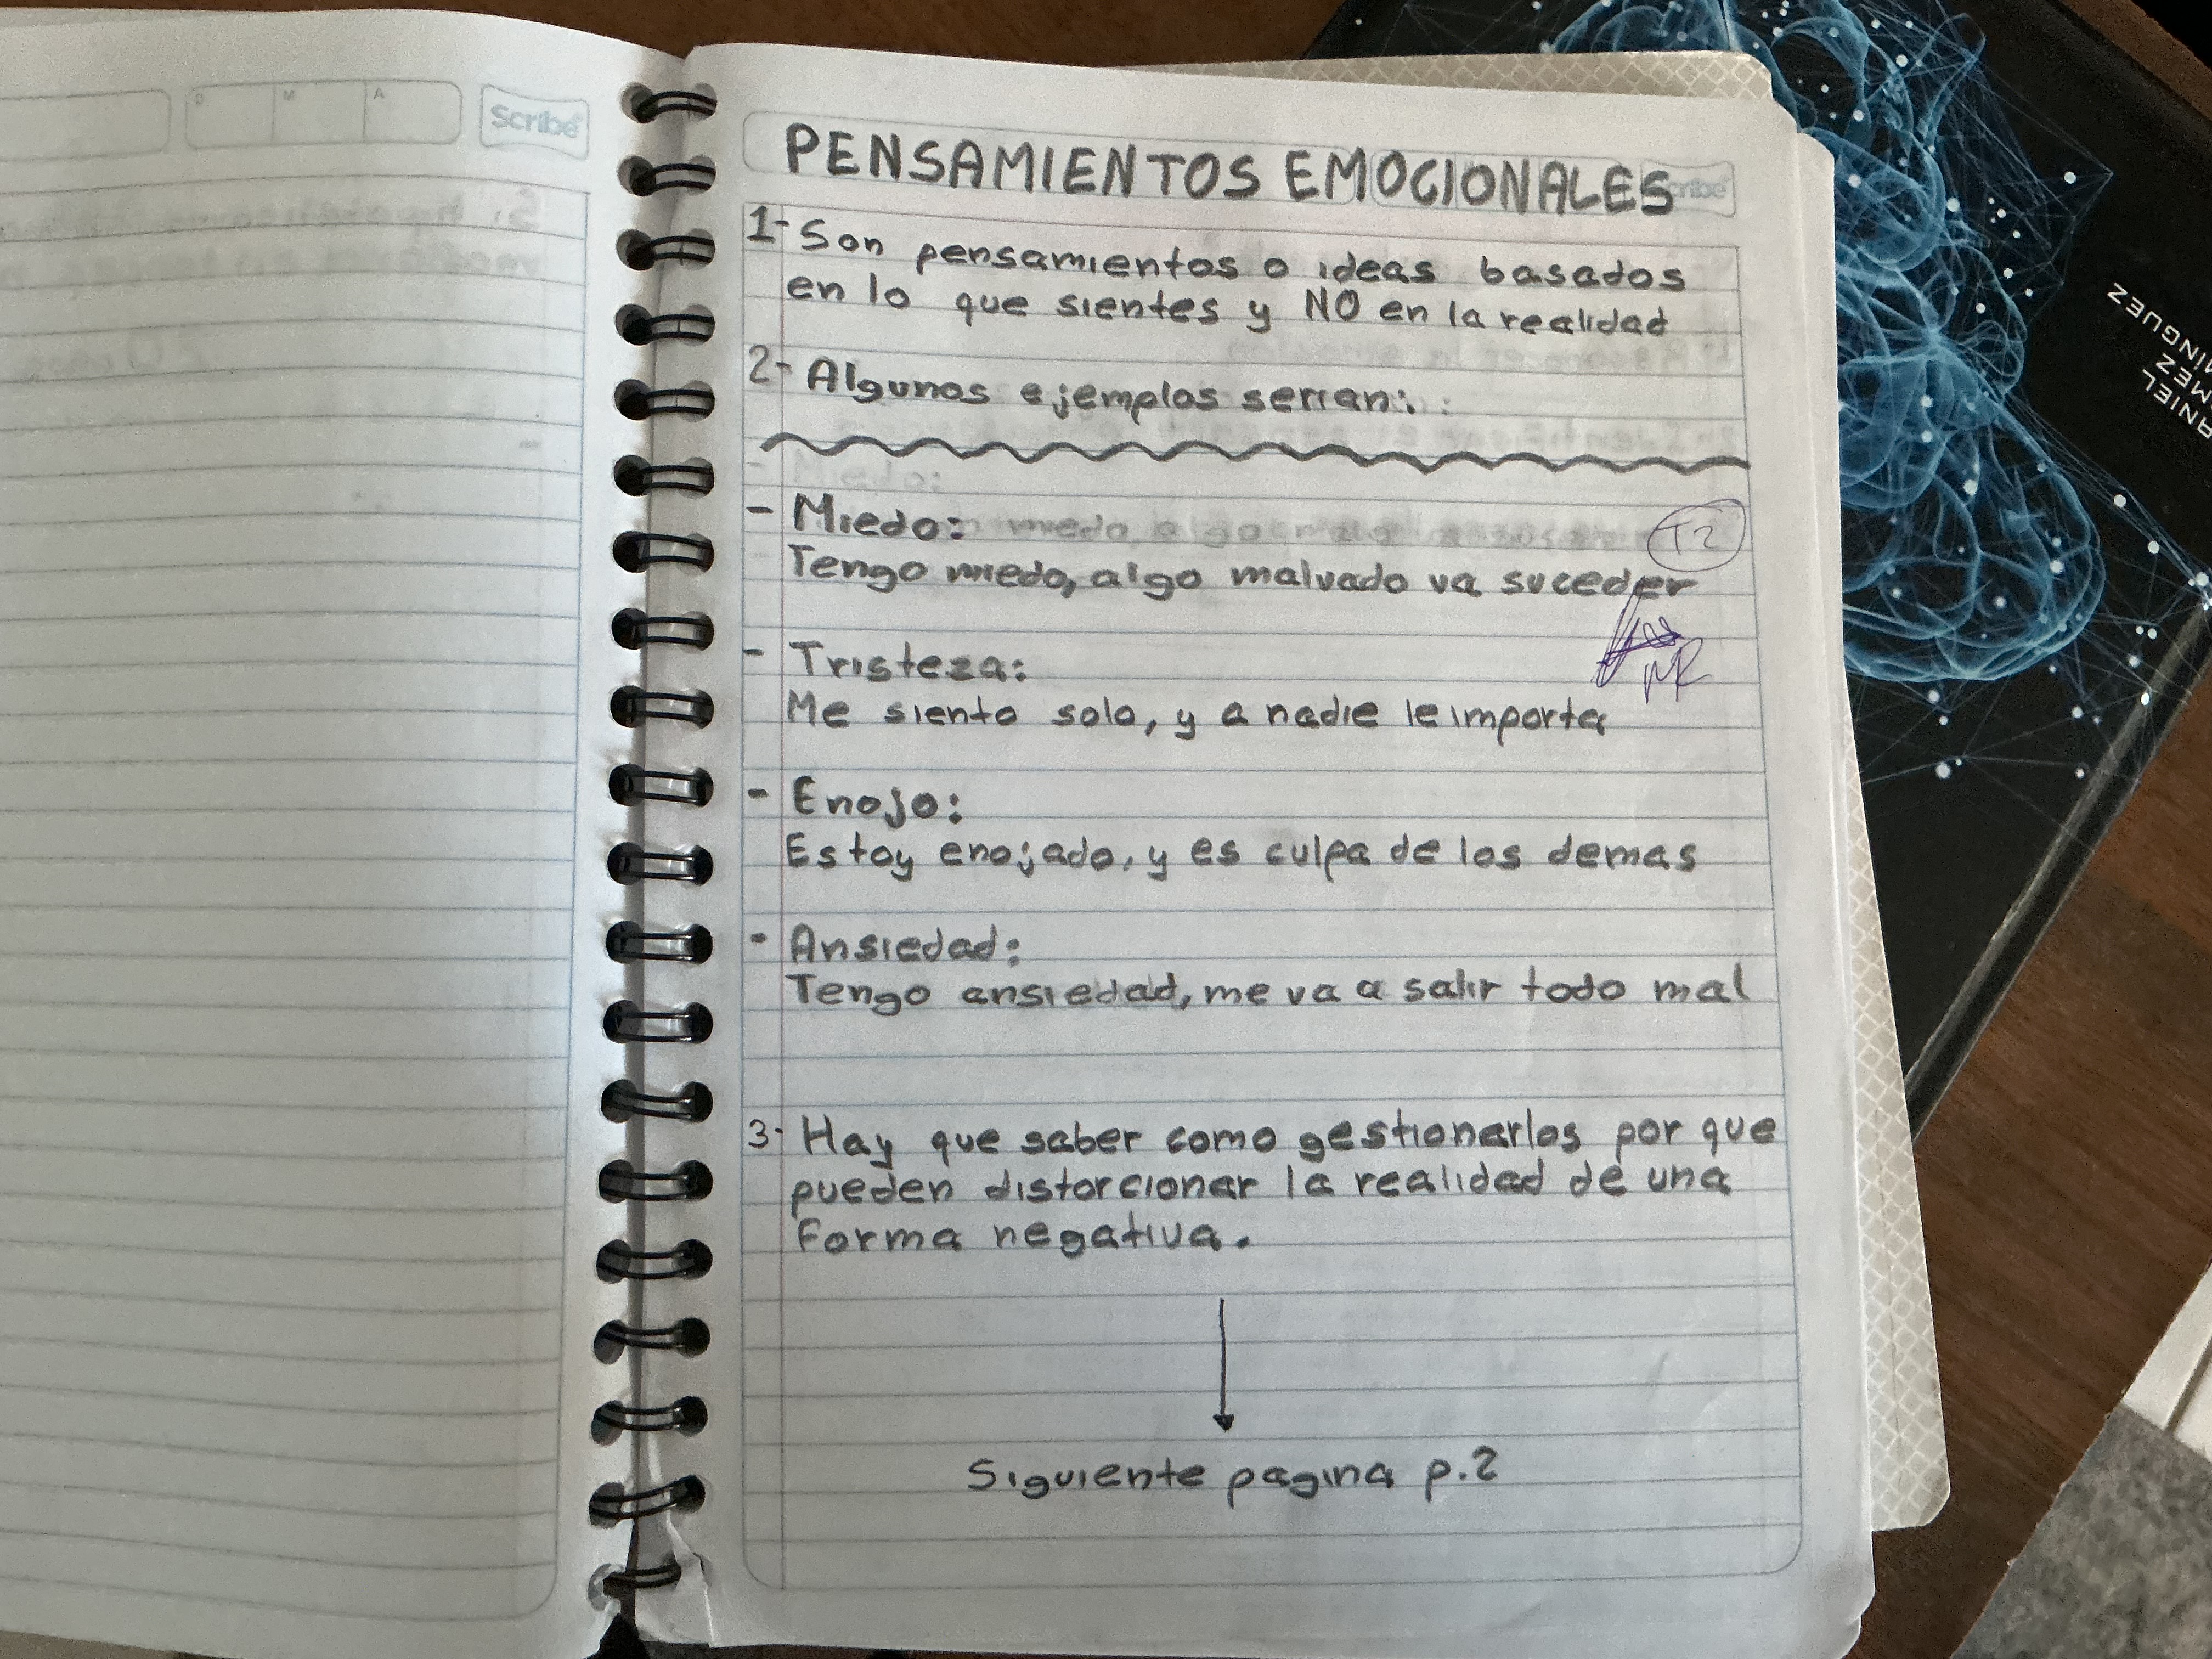 D M A
Scribe
PENSAMIENTOS EMOCIONALES
1- Son pensamientos o ideas basados
en lo que sientes y NO en la realidad
2- Algunos ejemplos serian:
- Miedo:
T2
Tengo miedo, algo malvado va suceder
- Tristeza:
Me siento solo, y a nadie le importa
- Enojo:
Estoy enojado, y es culpa de los demas
- Ansiedad:
Tengo ansiedad, me va a salir todo mal
3- Hay que saber como gestionarlos por que
pueden distorcionar la realidad de una
forma negativa.
Siguiente pagina p.2